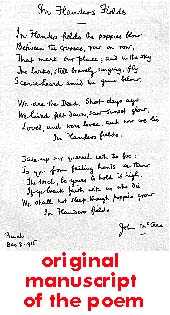 In Flanders Fields
In Flanders fields the poppies blow
Between the crosses, row on row,
That mark our place; and in the sky
The larks, still bravely singing, fly
Scarce heard amid the guns below.
We are the Dead. Short days ago
We lived, felt dawn, saw sunset glow,
Loved, and were loved, and now we lie
In Flanders fields.
Take up our quarrel with the foe:
To you from failing hands we throw
The torch; be yours to hold it high.
If ye break faith with us who die
We shall not sleep, though poppies grow
In Flanders fields
John McCrae
Punch
Dec 8 · 1915
original
manuscript
of the poem